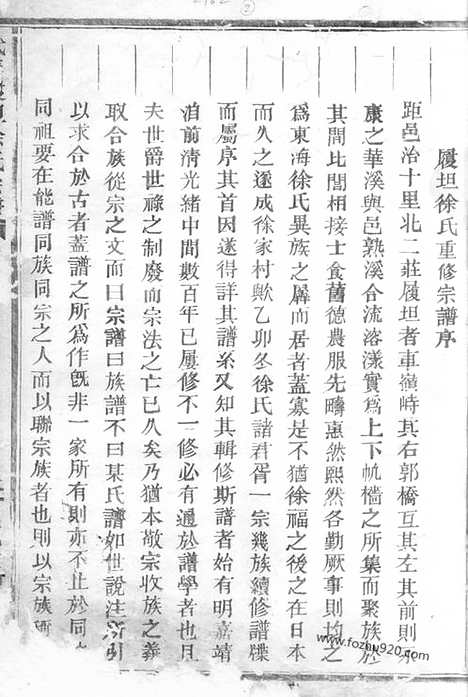 履坦徐氏重修宗譜序
距邑治十里北二莊履坦者車嶺峙其右郭橋互其左其前則永
康之華溪與邑熟溪合流溶漾實爲上下帆檣之所集而聚族於
其間比閭相接士食舊德農服先疇惠然熙然各勤厥事則均之
爲東海徐氏異族之羼而居者蓋寡是不猶徐福之後之在日本
而久之遂成徐家村歟乙卯冬徐氏諸君胥一宗幾族續修譜牒
而屬序其首因遂得詳其譜系又知其輯修斯譜者始有明嘉靖
洎前清光緒中間數百年已屢修不一修必有通於譜學者也且
夫世爵世祿之制廢而宗法之亡已久矣乃猶本敬宗收族之義
取合族從宗之文而曰宗譜曰族譜不曰某氏譜如世說注所引
以求合於古者蓋譜之所爲作既非一家所有則亦不止於同
同祖要在能譜同族同宗之人而以聯宗族者也則以宗族稱
www.fozhu920.com